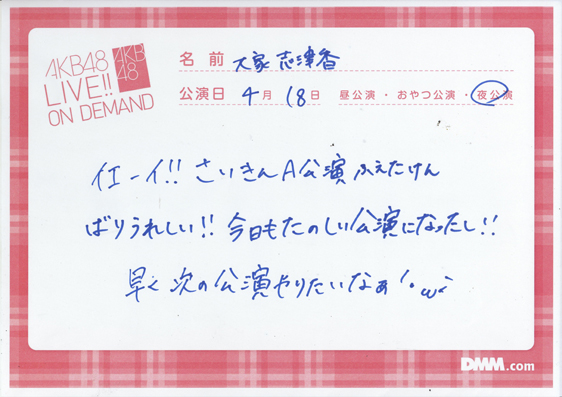 AKB48
LIVE!!
ON DEMAND
AKB
48
名前 大家志津香
公演日 4月18日 昼公演・おやつ公演・夜公演
イエーイ!! さいきんA公演ふえたけん
ばりうれしい!! 今日もたのしい公演になったし!!
早く次の公演やりたいなぁ'・ω・`
DMM.com